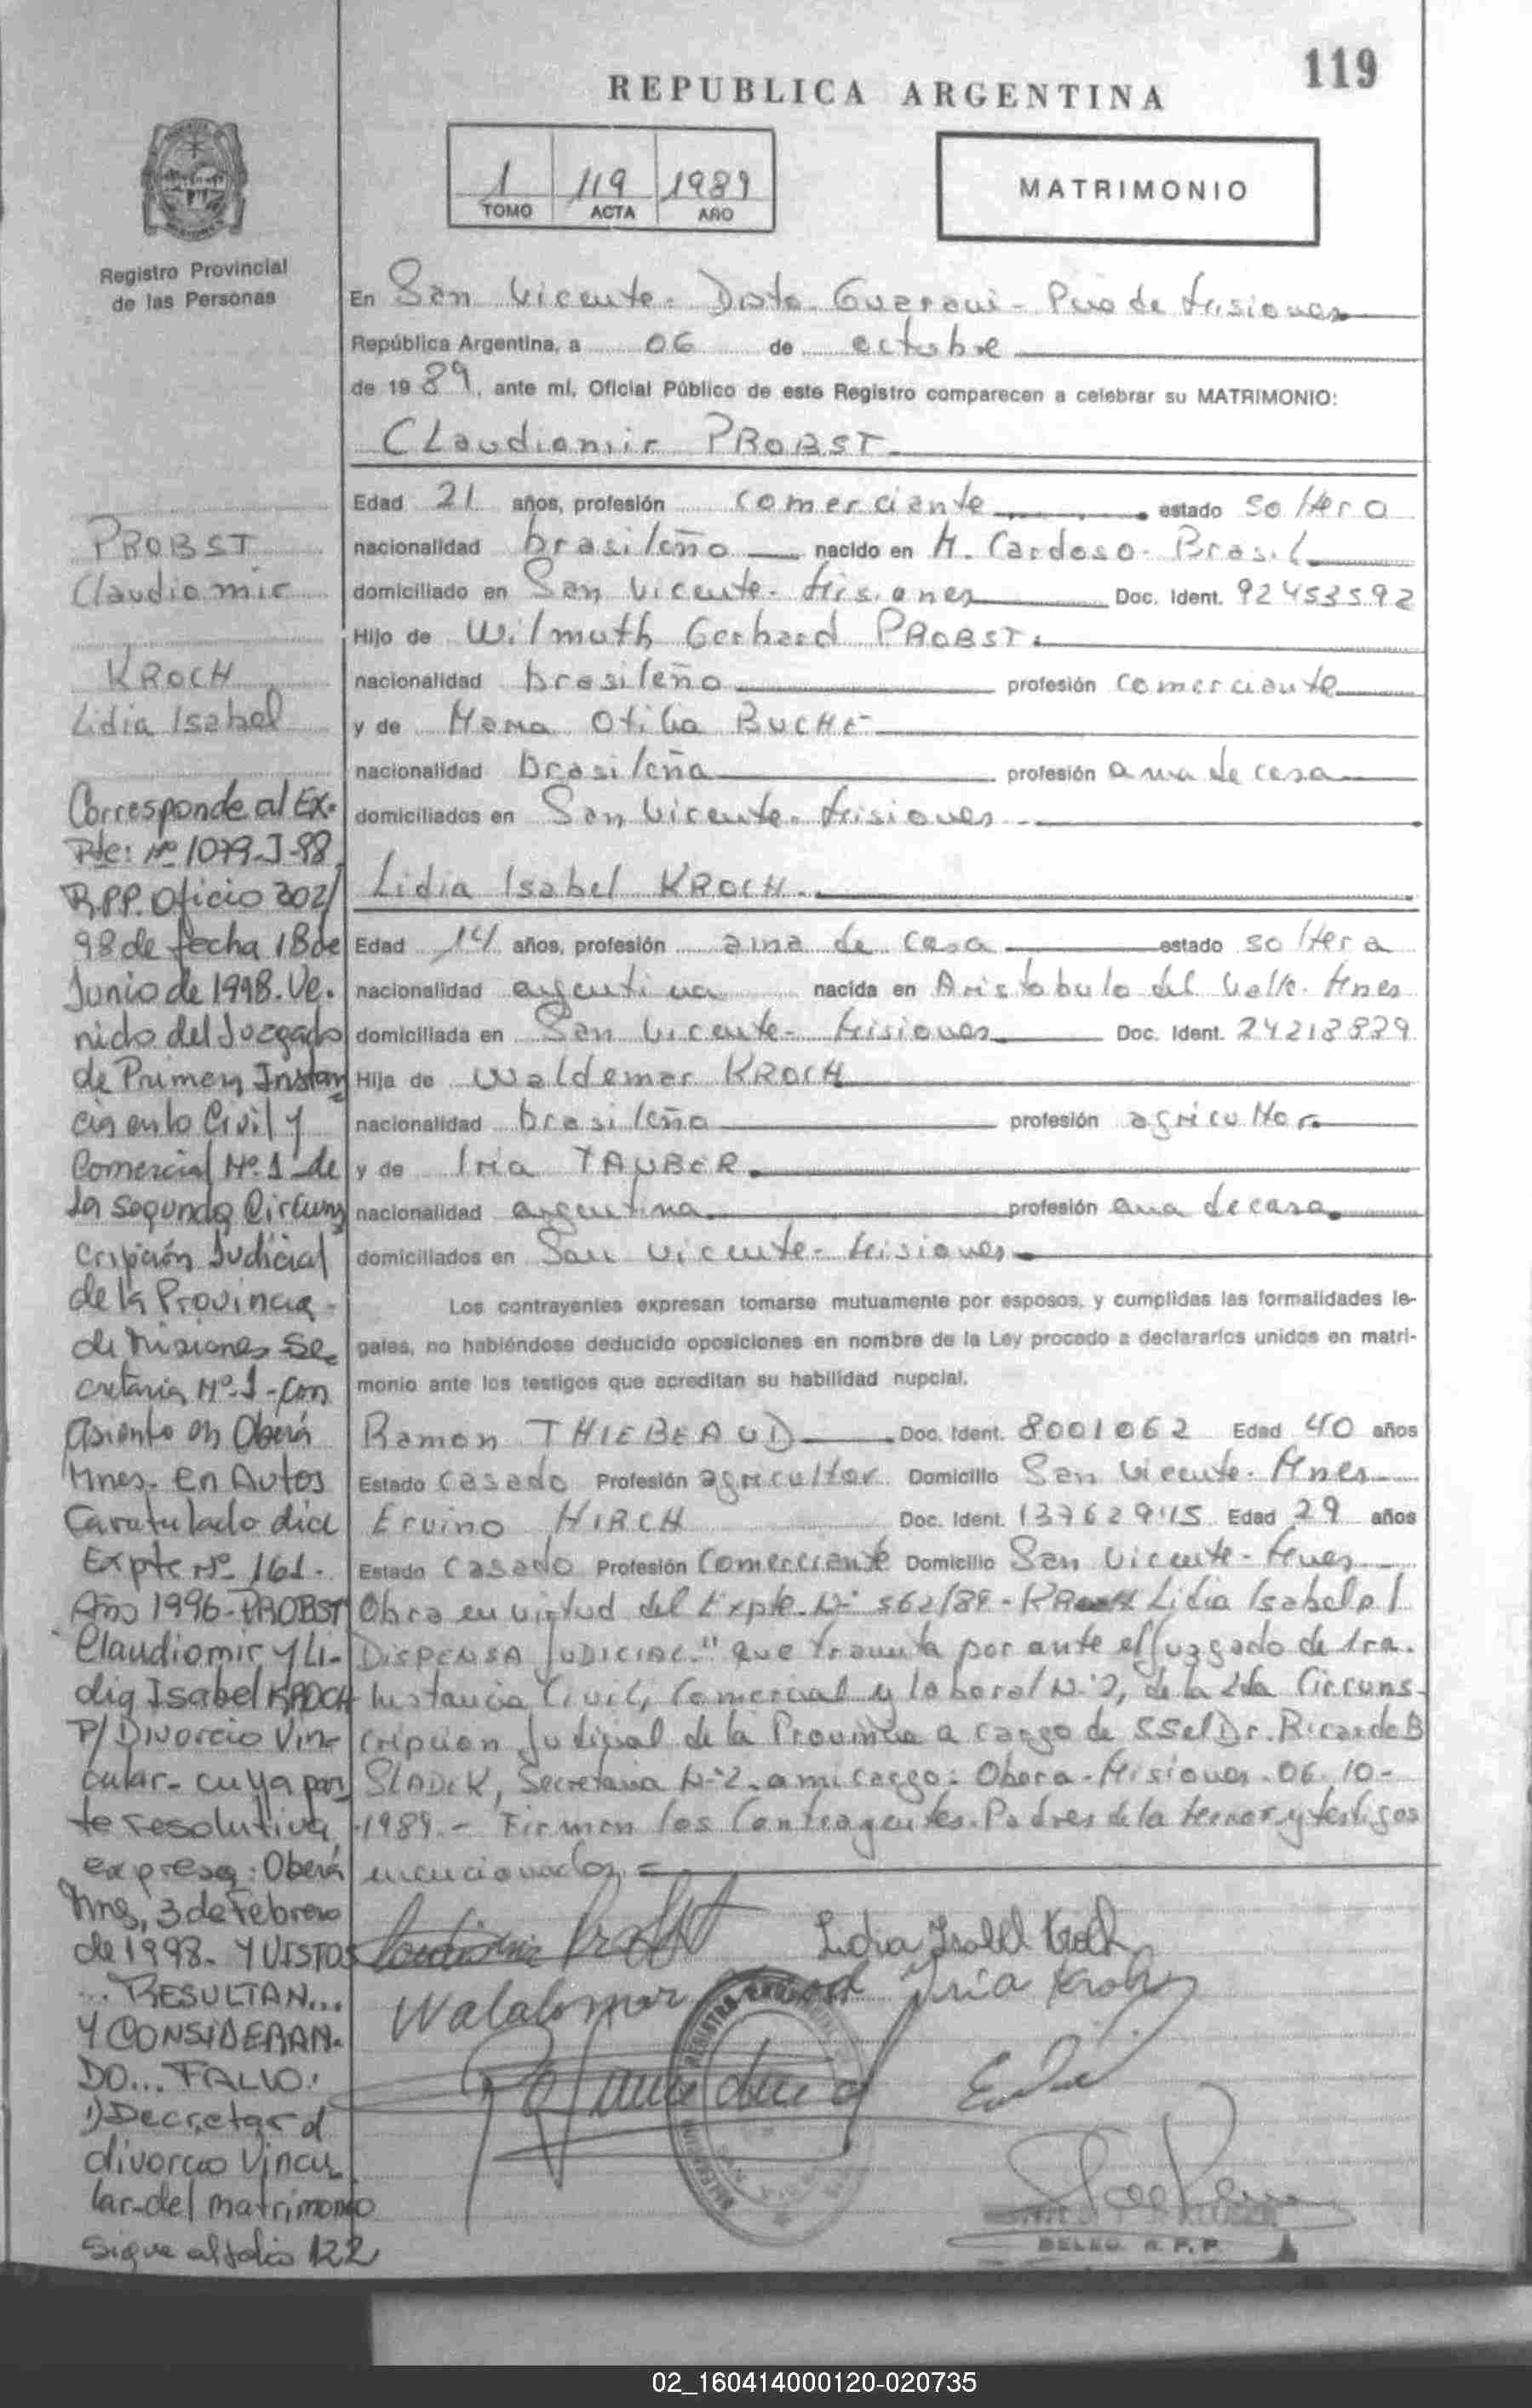 119
REPUBLICA ARGENTINA
1 119 1989
TOMO ACTA AÑO
MATRIMONIO
Registro Provincial
de las Personas
En San Vicente - Dpto Guarani - Pcia de Misiones
República Argentina, a 06 de octubre
de 1989, ante mí, Oficial Público de este Registro comparecen a celebrar su MATRIMONIO:
Claudiomir PROBST
Edad 21 años, profesión comerciante estado soltero
nacionalidad brasileño nacido en M. Cardoso - Brasil
domiciliado en San Vicente - Misiones Doc. Ident. 92453592
Hijo de Wilmuth Gerhard PROBST.
nacionalidad brasileño profesión comerciante
y de Maria Otilia BUCHE
nacionalidad brasileña profesión ama de casa
domiciliados en San Vicente - Misiones
Lidia Isabel KROCH
Edad 14 años, profesión ama de casa estado soltera
nacionalidad argentina nacida en Aristobulo del Valle. Mnes
domiciliada en San Vicente - Misiones Doc. Ident. 24218829
Hija de Waldemar KROCH
nacionalidad brasileña profesión agricultor
y de Iria TAUBER
nacionalidad argentina profesión ama de casa
domiciliados en San Vicente - Misiones
Los contrayentes expresan tomarse mutuamente por esposos, y cumplidas las formalidades le-
gales, no habiéndose deducido oposiciones en nombre de la Ley procedo a declararlos unidos en matri-
monio ante los testigos que acreditan su habilidad nupcial.
Ramon THIEBEAUD Doc. Ident. 8001062 Edad 40 años
Estado casado Profesión agricultor Domicilio San Vicente - Mnes
Ervino HIRCH Doc. Ident. 13762915 Edad 29 años
Estado Casado Profesión Comerciante Domicilio San Vicente - Mnes
Obra en virtud del Expte. Nº 562/89 - KROCH Lidia Isabel p/
DISPENSA JUDICIAL" que tramita por ante el Juzgado de 1ra.
Instancia Civil, Comercial y laboral Nº 2, de la 2da Circuns-
cripcion Judicial de la Provincia a cargo de SSel Dr. Ricardo B
SLADEK, Secretaria Nº 2. a mi cargo: Obera - Misiones. 06-10-
1989.- Firman los Contrayentes. Padres de la menor y testigos
mencionados =
Lidia Isabel Kroch
Iria Kroch
DELEG. R.P.P.
PROBST
Claudiomir
KROCH
Lidia Isabel
Corresponde al Ex-
Pte: Nº 1079-J-98
R.P.P. Oficio 302/
98 de fecha 18 de
Junio de 1998. Ve.
nido del Juzgado
de Primera Instan
cia en lo Civil y
Comercial Nº. 1 de
la segunda Circuns
cripción Judicial
de la Provincia
de Misiones Se
cretaria Nº. 1 - Con
asiento en Oberá
Mnes. en Autos
Caratulado dice
Expte Nº 161.
Año 1996 - PROBST
Claudiomir y Li-
dia Isabel KROCH
P/ Divorcio Vin-
cular - cuya par
te resolutiva
expresa: Oberá
Mns, 3 de Febrero
de 1998. Y VISTOS
... RESULTAN...
Y CONSIDERAN-
DO... FALLO:
1) Decretar el
divorcio Vincu
lar del matrimonio
Sigue al folio 122
02_160414000120-020735